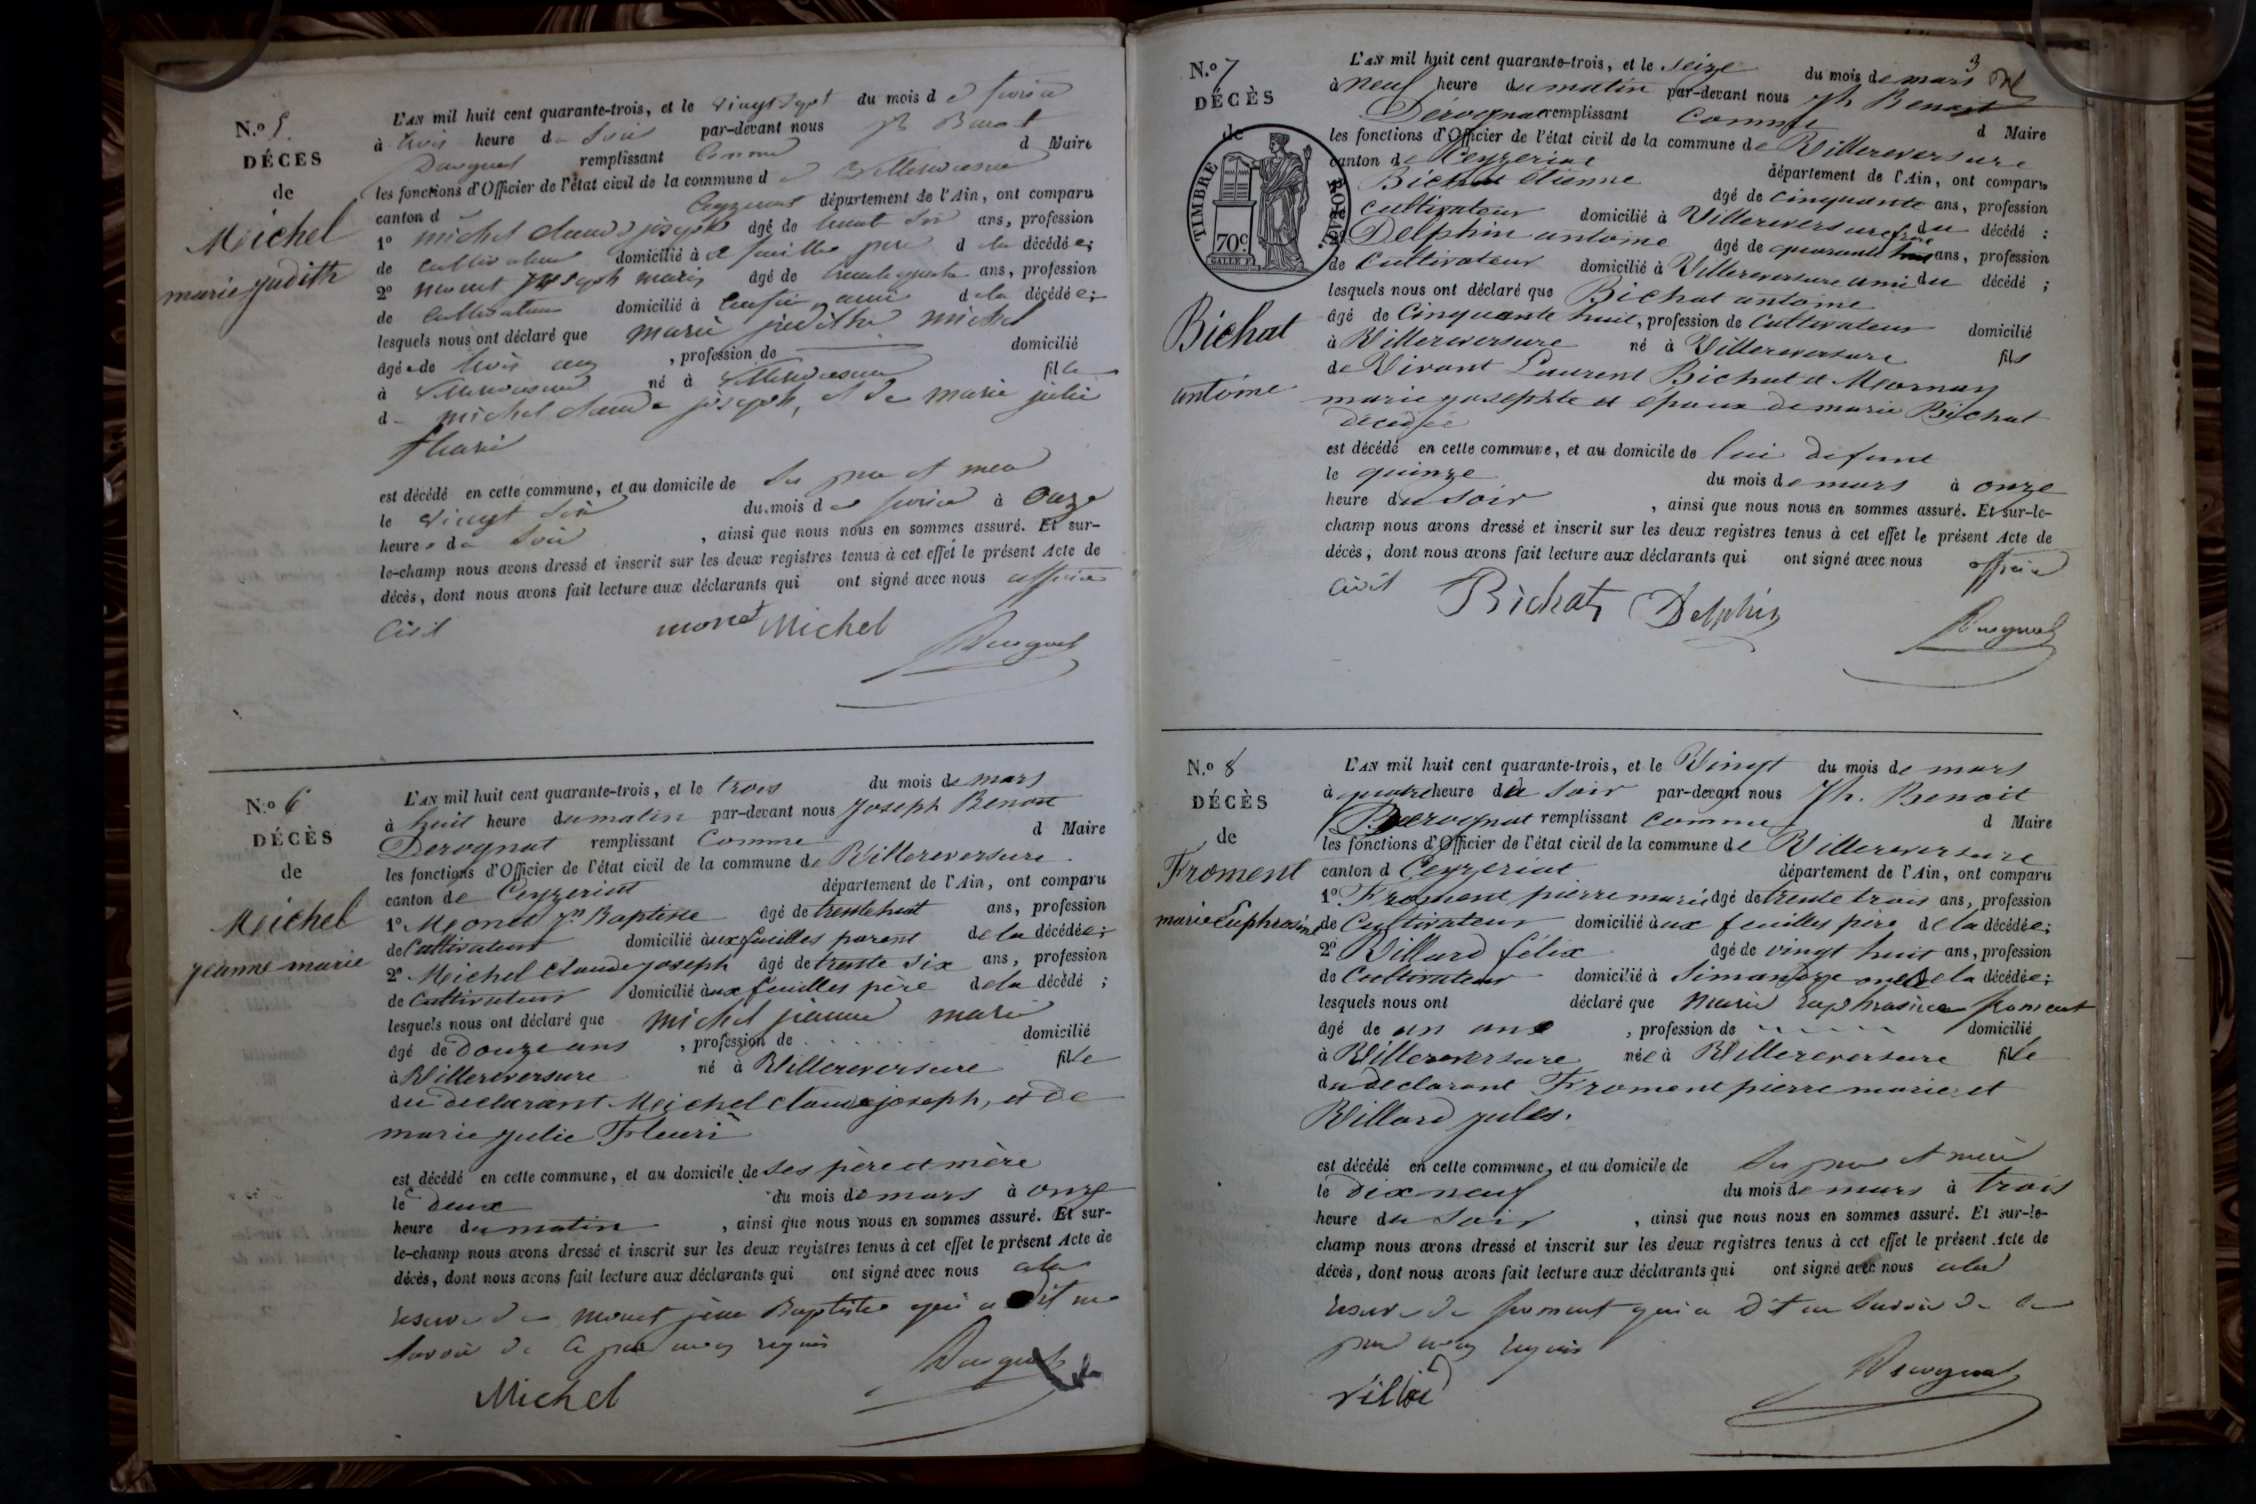 N.o 5.
DÉCES
de
Michel
marie judith
L'AN mil huit cent quarante-trois, et le vingt sept du mois de
à trois heure du soir par-devant nous
remplissant comme d Maire
les fonctions d'Officier de l'état civil de la commune d
canton d département de l'Ain, ont comparu
1o michel claude joseph âgé de ans, profession
de cultivateur domicilié à père d la décédée;
2o joseph marie âgé de ans, profession
de cultivateur domicilié à ami d la décédée;
lesquels nous ont déclaré que marie judithe michel
âgée de trois ans, profession de domicilié
à né à fille
d michel claude joseph, et de marie julie
est décédé en cette commune, et au domicile de
le vingt six du mois de à onze
heures du soir, ainsi que nous nous en sommes assuré. Et sur-
le-champ nous avons dressé et inscrit sur les deux registres tenus à cet effet le présent Acte de
décès, dont nous avons fait lecture aux déclarants qui ont signé avec nous officier
Civil
monet Michel
N.o 6
DÉCÈS
de
Michel
jeanne marie
L'AN mil huit cent quarante-trois, et le trois du mois de mars
à huit heure du matin par-devant nous joseph Benoit
Derognat remplissant Comme d Maire
les fonctions d'Officier de l'état civil de la commune de Villereversure
canton de Ceyzeriat département de l'Ain, ont comparu
1o Monet jn Baptiste âgé de trente huit ans, profession
de Cultivateur domicilié aux feuilles parent de la décédée;
2o Michel Claude joseph âgé de trente six ans, profession
de Cultivateur domicilié aux feuilles père de la décédé;
lesquels nous ont déclaré que michel jeanne marie
âgé de Douze ans, profession de domicilié
à Villereversure né à Villereversure fille
du declarant Michel claude joseph, et de
marie julie Fleuri
est décédé en cette commune, et au domicile de ses père et mère
le deux du mois de mars à onze
heure du matin, ainsi que nous nous en sommes assuré. Et sur-
le-champ nous avons dressé et inscrit sur les deux registres tenus à cet effet le présent Acte de
décès, dont nous avons fait lecture aux déclarants qui ont signé avec nous a la
reserve de monet jean Baptiste qui a dit ne
savoir de ce requis
Michel
3
N.o 7
DÉCÈS
de
TIMBRE ROYAL
70c
Bichat
antoine
L'AN mil huit cent quarante-trois, et le seize du mois de mars
à neuf heure du matin par-devant nous Jh Benoit
Derognat remplissant Comme d Maire
les fonctions d'Officier de l'état civil de la commune de Villereversure
canton de Ceyzeriat département de l'Ain, ont comparu
Bichat étienne âgé de cinquante ans, profession
cultivateur domicilié à Villereversure frère du décédé;
Delphin antoine âgé de quarante trois ans, profession
de Cultivateur domicilié à Villereversure ami du décédé;
lesquels nous ont déclaré que Bichat antoine
âgé de Cinquante huit, profession de Cultivateur domicilié
à Villereversure né à Villereversure fils
de Vivant Laurent Bichat et
marie josephte et époux de marie Bichat
décédée
est décédé en cette commune, et au domicile de lui défunt
le quinze du mois de mars à onze
heure du soir, ainsi que nous nous en sommes assuré. Et sur-le-
champ nous avons dressé et inscrit sur les deux registres tenus à cet effet le présent Acte de
décès, dont nous avons fait lecture aux déclarants qui ont signé avec nous officier
Civil
Bichat Delphin
N.o 8
DÉCÈS
de
Froment
marie Euphrosine
L'AN mil huit cent quarante-trois, et le Vingt du mois de mars
à quatre heure du soir par-devant nous Jh. Benoit
Derognat remplissant comme d Maire
les fonctions d'Officier de l'état civil de la commune de Villereversure
canton d Ceyzeriat département de l'Ain, ont comparu
1o Froment pierre marie âgé de trente trois ans, profession
de Cultivateur domicilié aux feuilles père de la décédée;
2o Villard félix âgé de vingt huit ans, profession
de Cultivateur domicilié à Simandre oncle de la décédée;
lesquels nous ont déclaré que marie froment
âgé de un ans, profession de domicilié
à Villereversure née à Villereversure fille
du declarant Froment pierre marie et
Villard jules.
est décédé en cette commune, et au domicile de ses père et mère
le dix neuf du mois de mars à trois
heure du soir, ainsi que nous nous en sommes assuré. Et sur-le-
champ nous avons dressé et inscrit sur les deux registres tenus à cet effet le présent Acte de
décès, dont nous avons fait lecture aux déclarants qui ont signé avec nous a la
reserve de froment qui a dit ne savoir de ce
requis